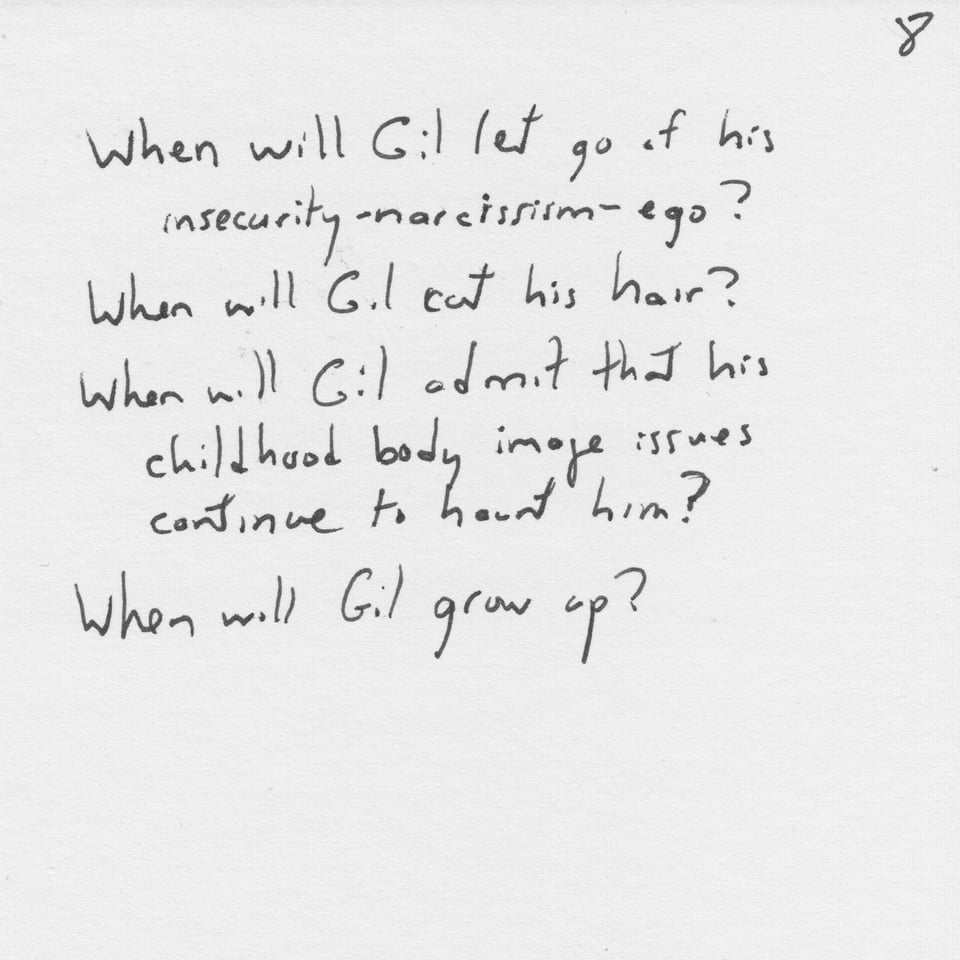 8
When will Gil let go of his
insecurity-narcissism-ego?
When will Gil cut his hair?
When will Gil admit that his
childhood body image issues
continue to haunt him?
When will Gil grow up?